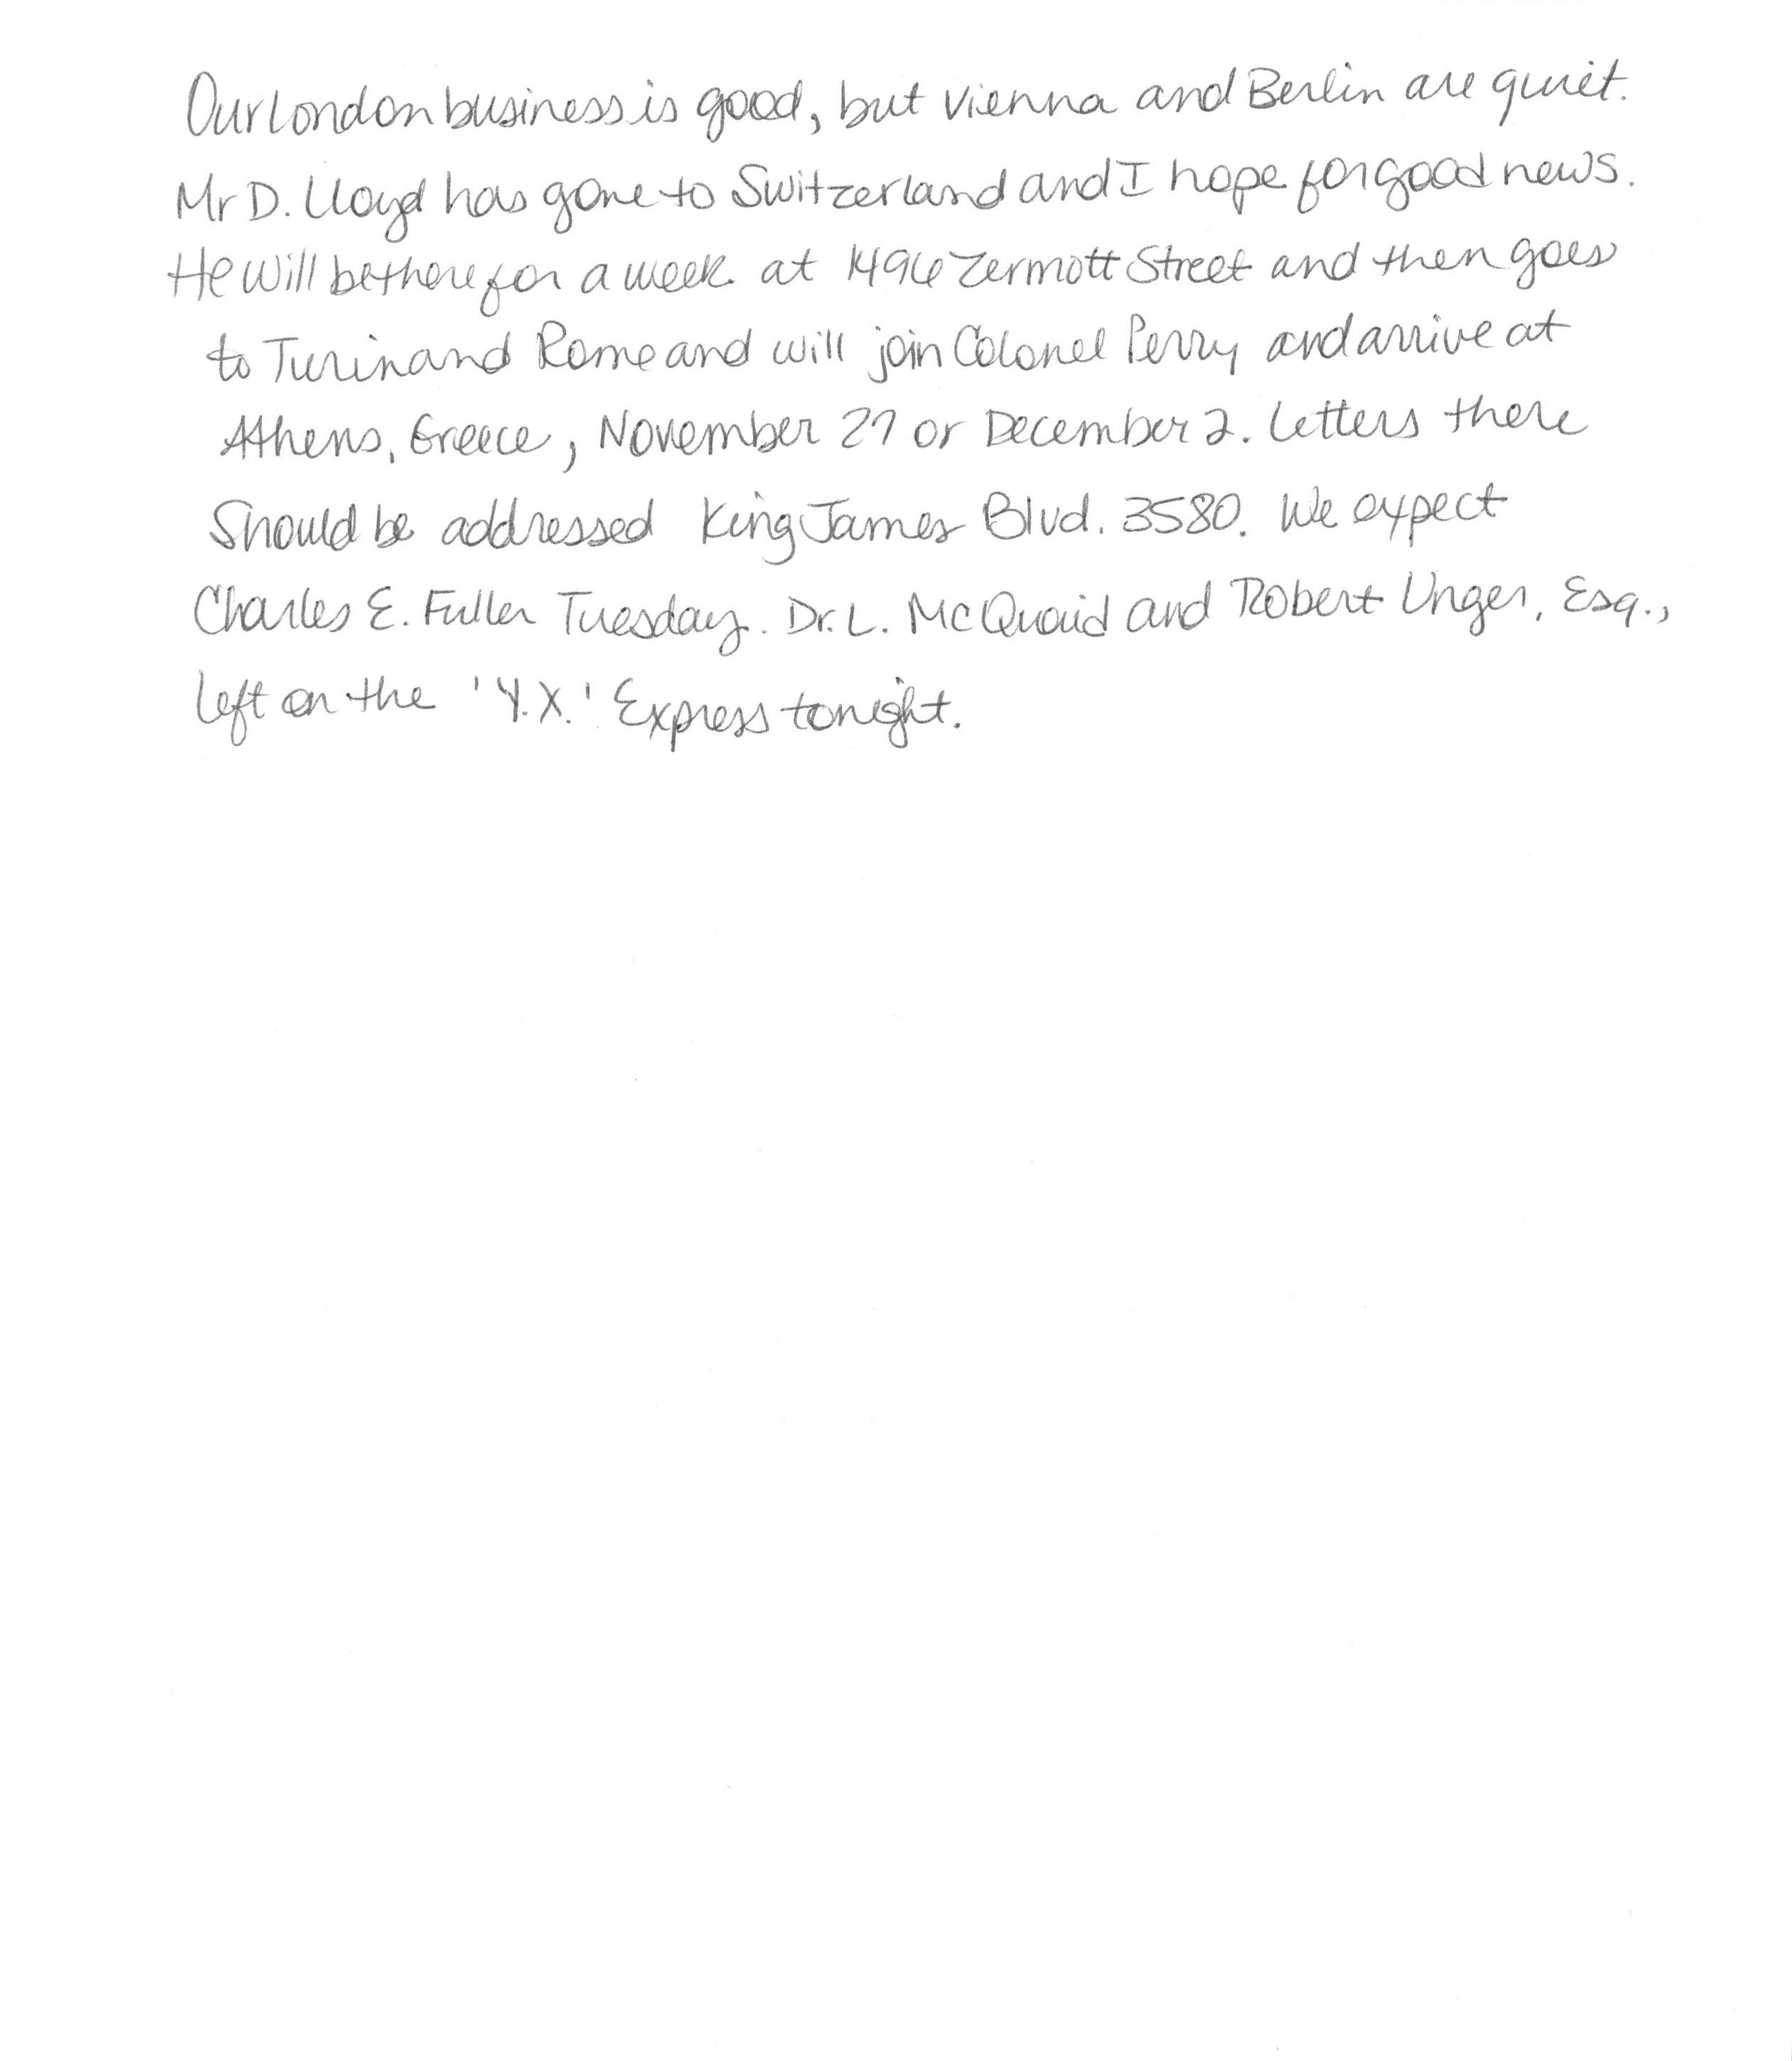 Our London business is good, but Vienna and Berlin are quiet.
Mr D. Lloyd has gone to Switzerland and I hope for good news.
He will be there for a week. at 1496 Zermott Street and then goes
to Turin and Rome and will join Colonel Perry and arrive at
Athens, Greece, November 27 or December 2. Letters there
Should be addressed King James Blvd. 3580. We expect
Charles E. Fuller Tuesday. Dr. L. McQuaid and Robert Unger, Esq.,
left on the 'Y.X.' Express tonight.